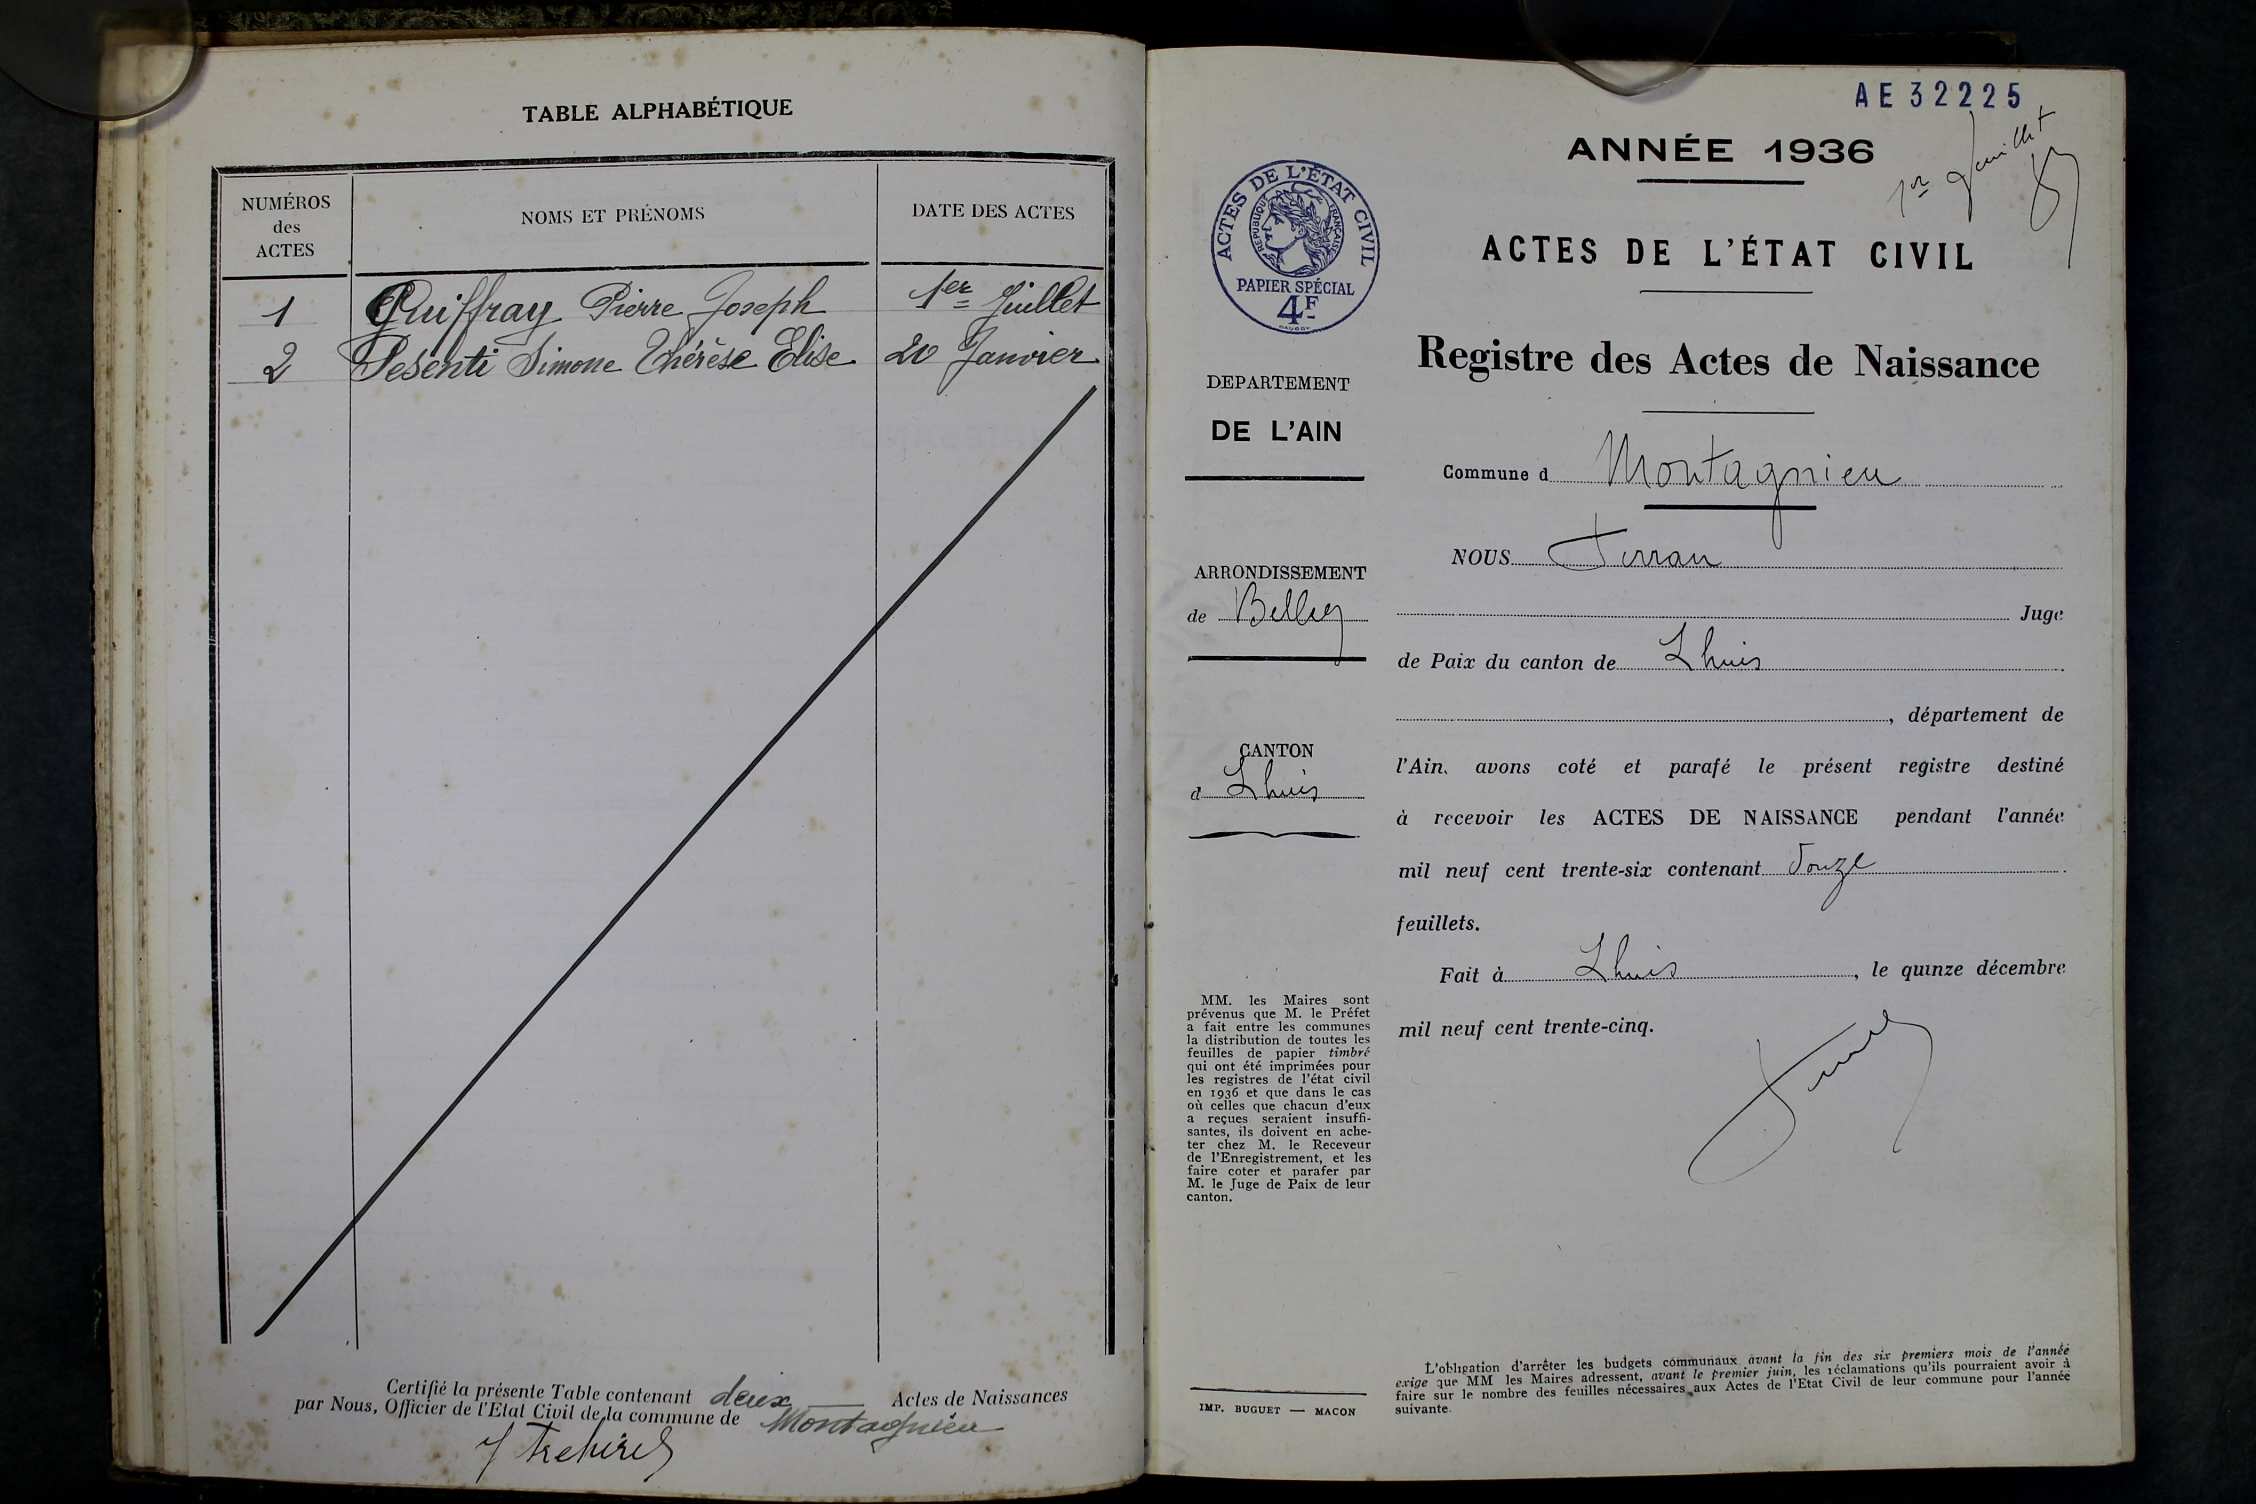 TABLE ALPHABÉTIQUE
NUMÉROS
des
ACTES
NOMS ET PRÉNOMS
DATE DES ACTES
1 Guiffray Pierre Joseph 1er Juillet
2 Pesenti Simone Thérèse Elise 20 Janvier
Certifié la présente Table contenant deux Actes de Naissances
par Nous, Officier de l'Etat Civil de la commune de Montagnieu
AE 32225
1er Juillet
ANNÉE 1936
ACTES DE L'ÉTAT CIVIL
REPUBLIQUE FRANÇAISE
PAPIER SPÉCIAL
4F
ACTES DE L'ÉTAT CIVIL
Registre des Actes de Naissance
DEPARTEMENT
DE L'AIN
Commune d Montagnieu
NOUS
ARRONDISSEMENT
de Belley
Juge
de Paix du canton de Lhuis
, département de
CANTON
d Lhuis
l'Ain, avons coté et parafé le présent registre destiné
à recevoir les ACTES DE NAISSANCE pendant l'année
mil neuf cent trente-six contenant douze
feuillets.
Fait à Lhuis, le quinze décembre
mil neuf cent trente-cinq.
MM. les Maires sont
prévenus que M. le Préfet
a fait entre les communes
la distribution de toutes les
feuilles de papier timbré
qui ont été imprimées pour
les registres de l'état civil
en 1936 et que dans le cas
où celles que chacun d'eux
a reçues seraient insuffi-
santes, ils doivent en ache-
ter chez M. le Receveur
de l'Enregistrement, et les
faire coter et parafer par
M. le Juge de Paix de leur
canton.
IMP. BUGUET — MACON
L'obligation d'arrêter les budgets communaux avant la fin des six premiers mois de l'année
exige que MM les Maires adressent, avant le premier juin, les réclamations qu'ils pourraient avoir à
faire sur le nombre des feuilles nécessaires aux Actes de l'Etat Civil de leur commune pour l'année
suivante.